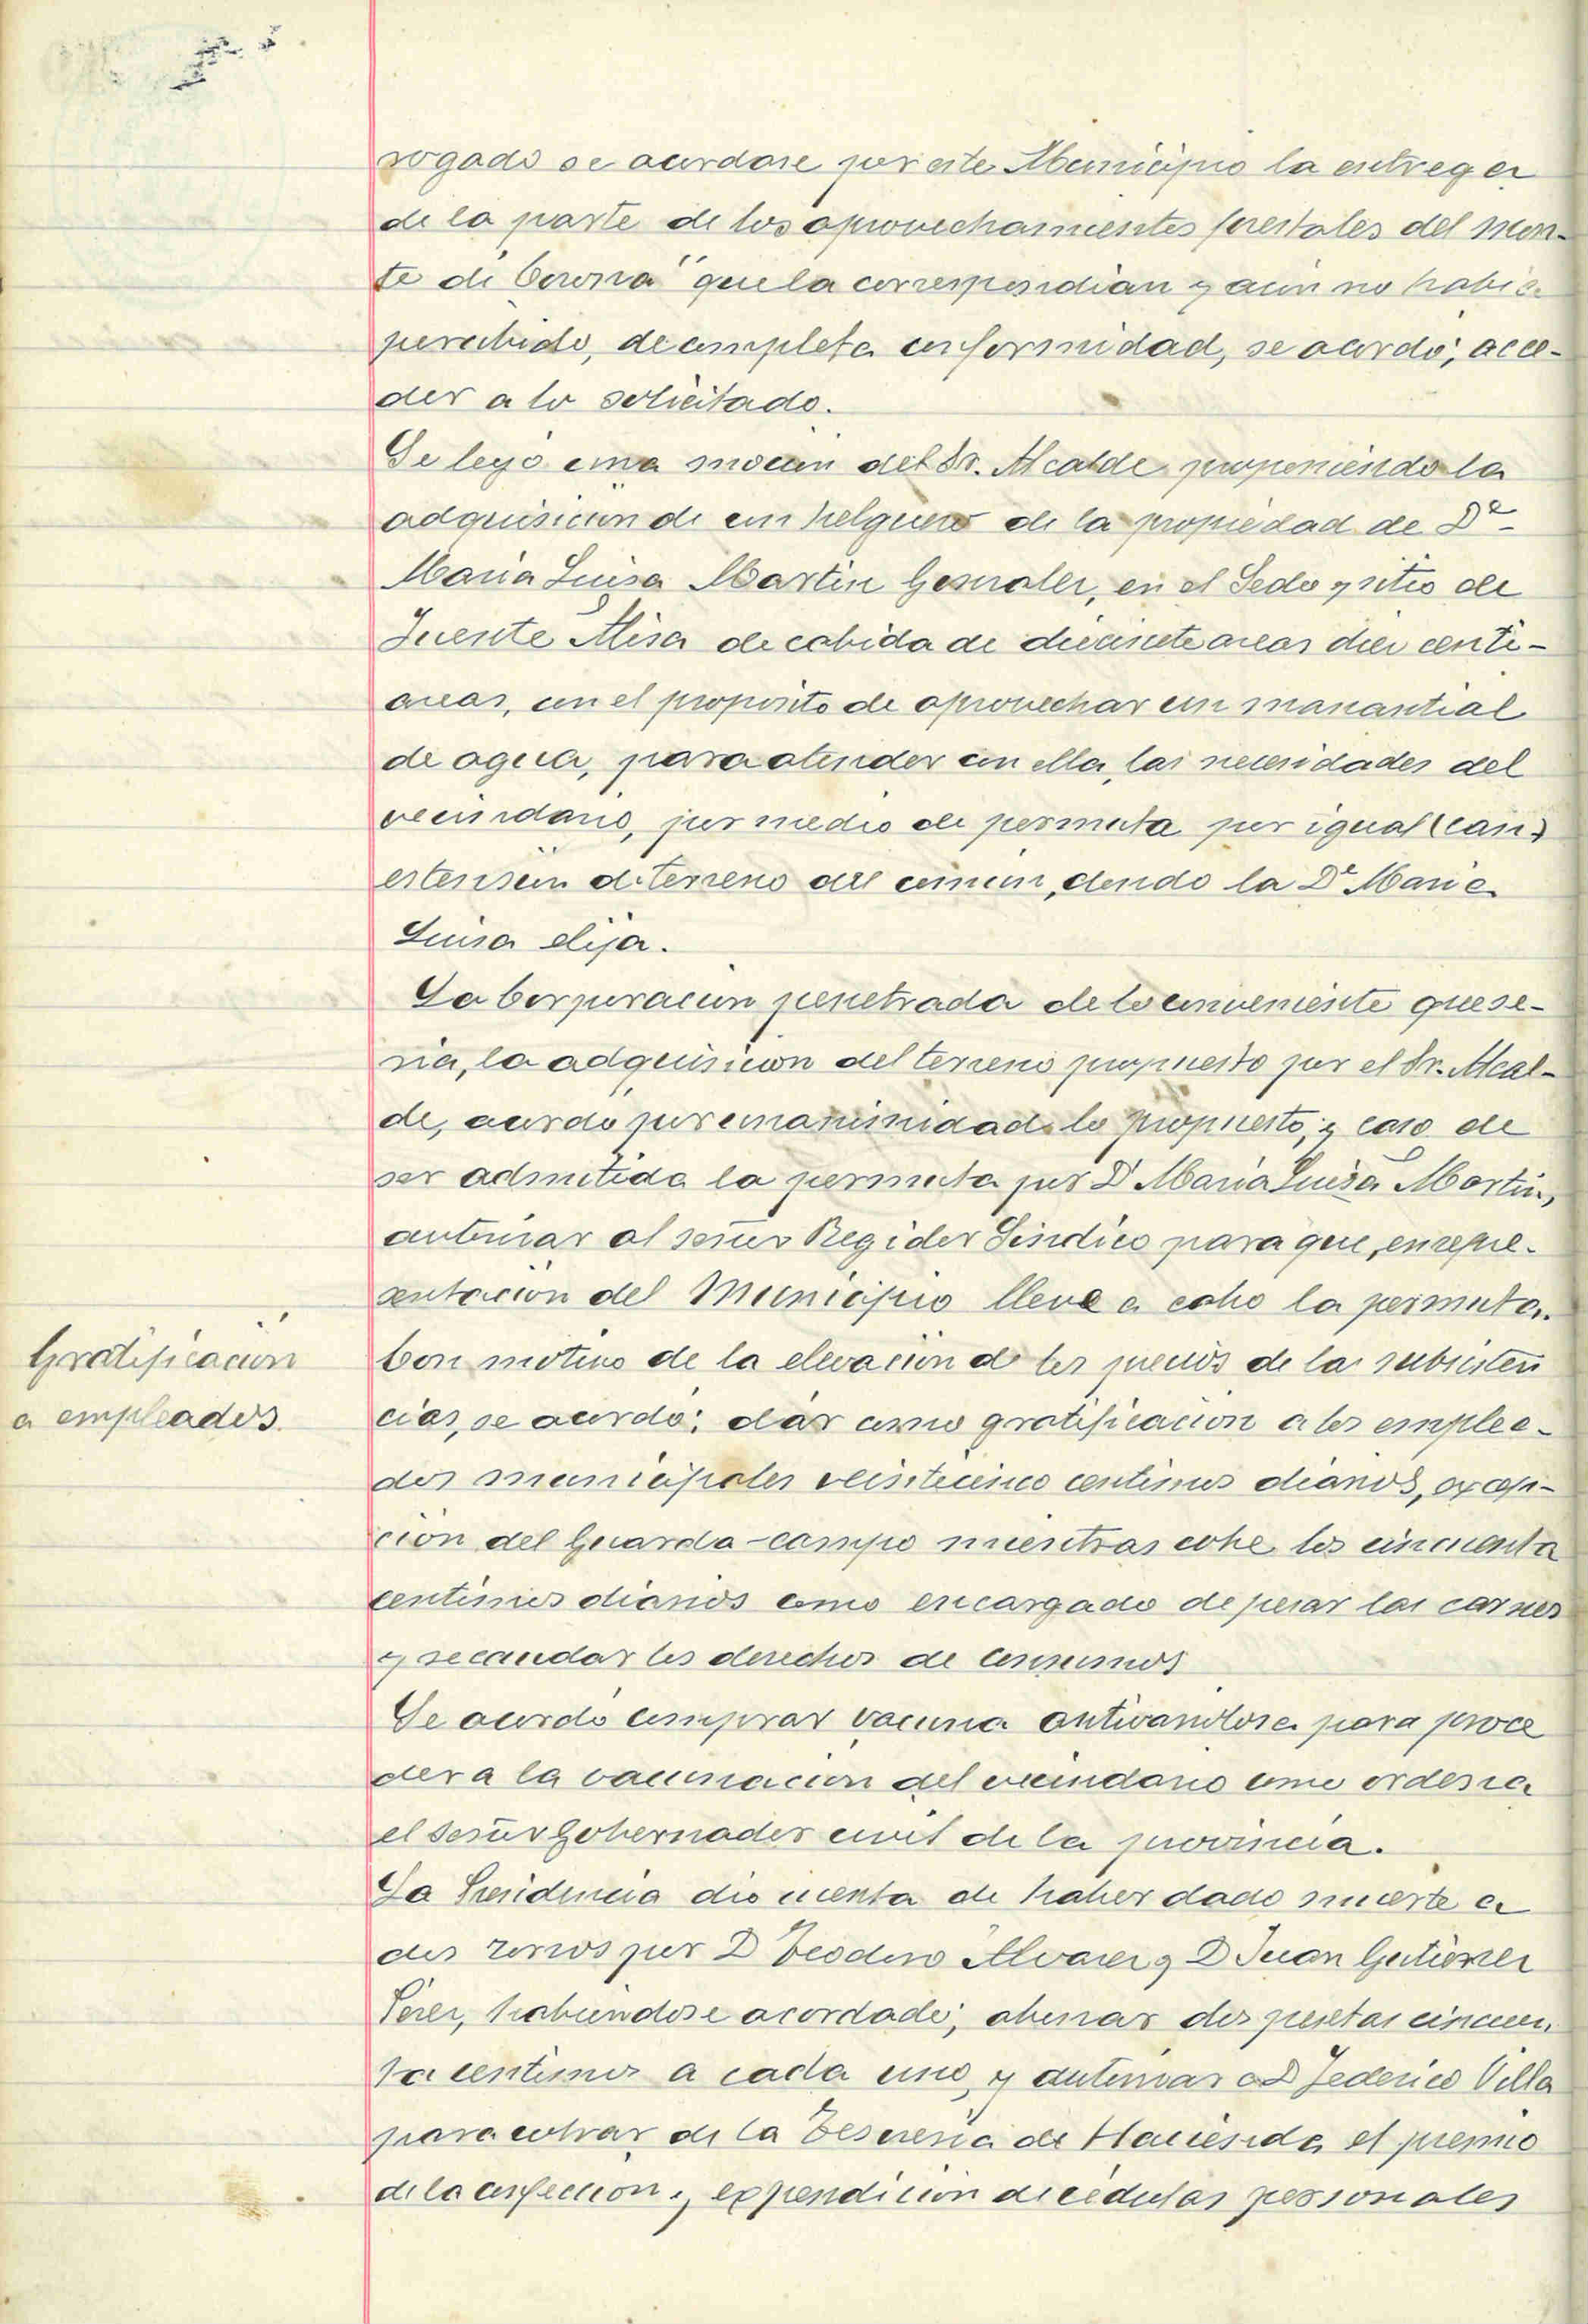 rogado se acordase por este Municipio la entrega
de la parte de los aprovechamientos forestales del mon-
te de Corona" que la correspondian y aún no había
percibido, de completa conformidad, se acordó; acce-
der a lo solicitado.
Se leyó una moción del Sr. Alcalde proponiendo la
adquisición de un helguero de la propiedad de Dª
María Luisa Martin Gonzalez, en el Sedo y sitio de
Fuente Misa de cabida de diecisiete areas diez centi-
areas, con el proposito de aprovechar un manantial
de agua, para atender con ella, las necesidades del
vecindario, por medio de permuta por igual (can)
estensión de terreno del común, donde la Dª María
Luisa elija.
La Corporacion penetrada de lo conveniente que se-
ria, la adquisicion del terreno propuesto por el Sr. Alcal-
de, acordó por unanimidad lo propuesto, y caso de
ser admitida la permuta por Dª María Luisa Martin,
autorizar al señor Regidor Sindico para que, en repre-
sentacion del Municipio lleve a cabo la permuta.
Gratificación
a empleados.
Con motivo de la elevación de los precios de las subsisten
cias, se acordó; dár como gratificación a los emplea-
dos municipales veinticinco centimos diarios, excep-
ción del Guarda-campo mientras cobre los cincuenta
centimos diarios como encargado de pesar las carnes
y recaudar los derechos de consumos
Se acordó comprar vacuna antivariolosa para proce
der a la vacunación del vecindario como ordena
el señor Gobernador civil de la provincia.
La Presidencia dio cuenta de haber dado muerte a
dos zorros por D Teodoro Alvarez y D Juan Gutierrez
Perez, habiendose acordado; abonar dos pesetas cincuen
ta centimos a cada uno, y autorizar a D Federico Villa
para cobrar de la Tesoreria de Hacienda el premio
de la confeccion y expendición de cédulas personales